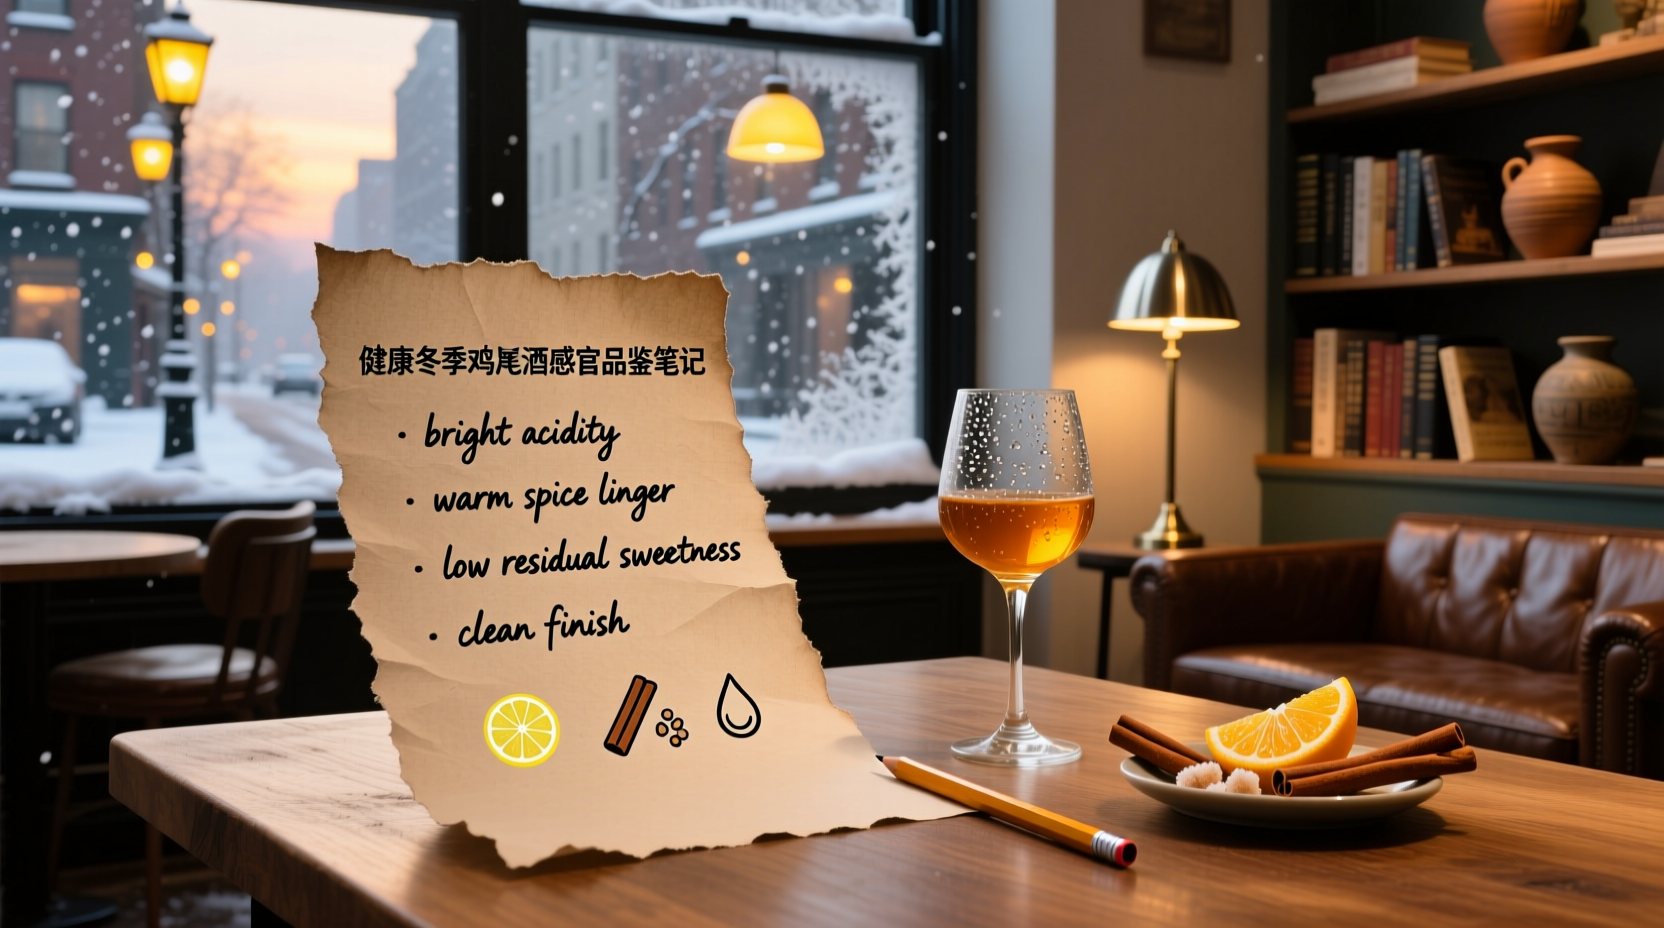 健康冬季鸡尾酒感官品鉴笔记
• bright acidity
• warm spice linger
• low residual sweetness
• clean finish